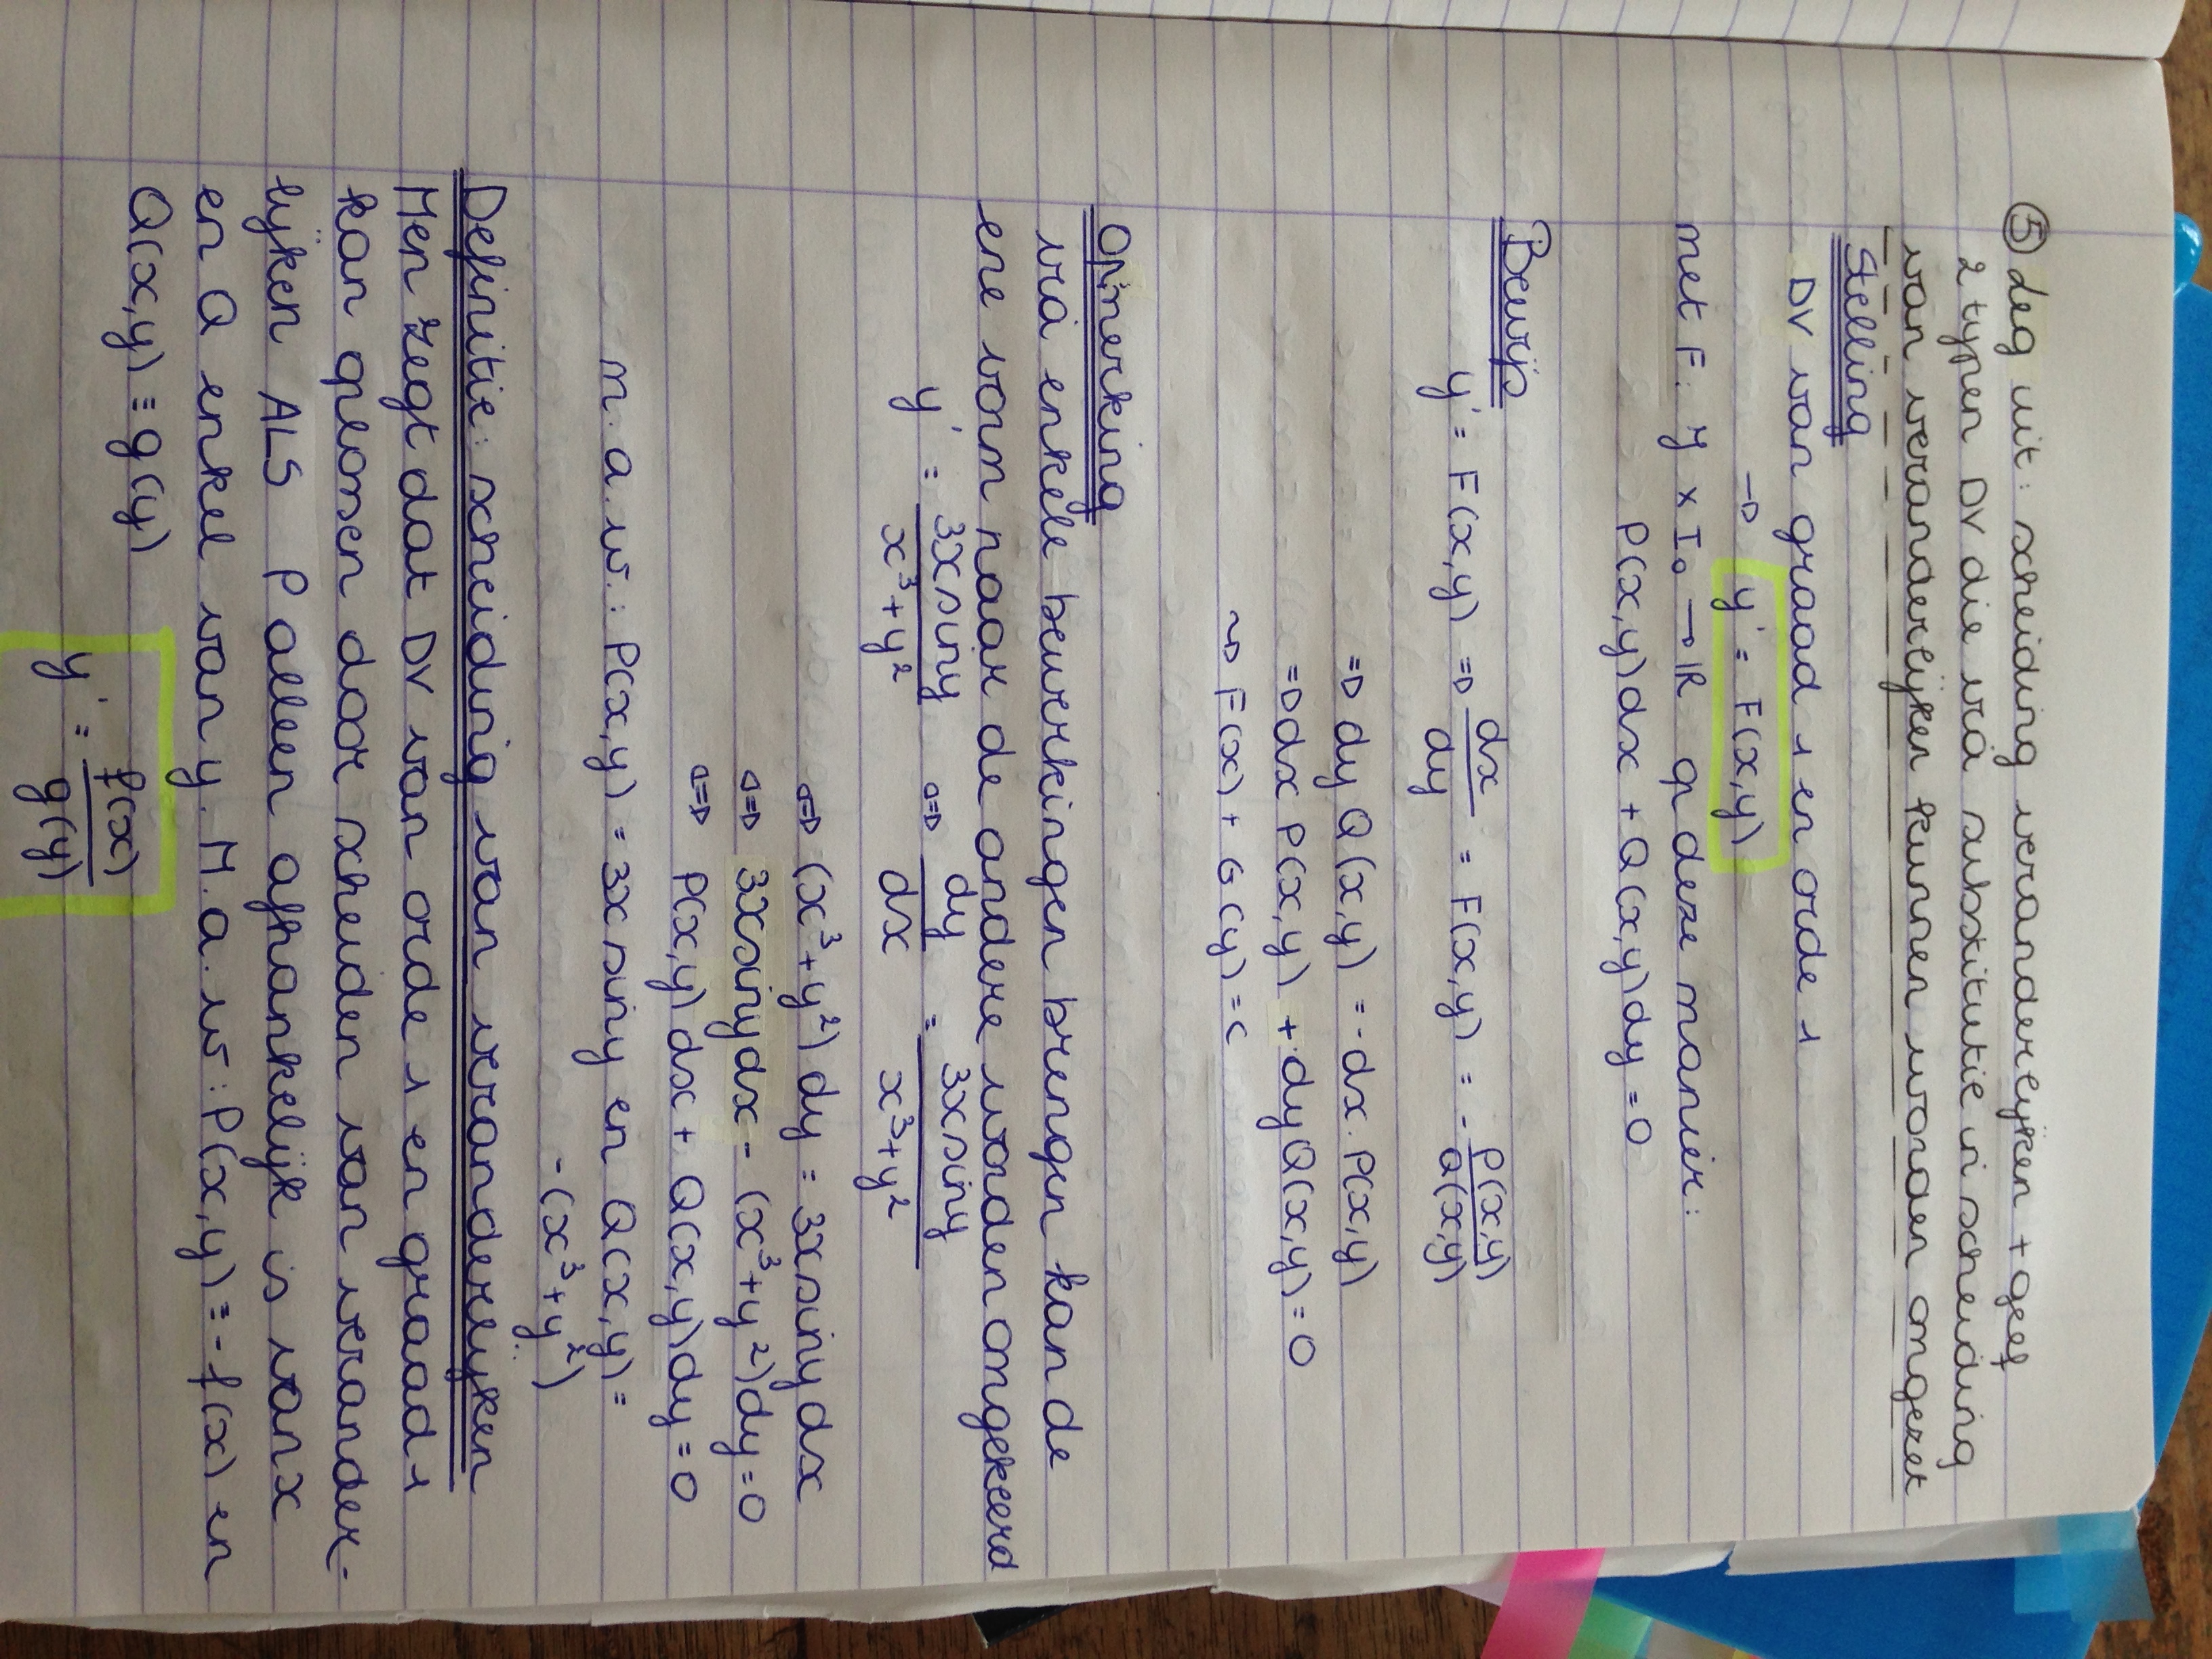 ⑤ Leg uit: scheiding veranderlijken + geef
2 typen DV die via substitutie in scheiding
van veranderlijken kunnen worden omgezet
Stelling
DV van graad 1 en orde 1
→ y' = F(x,y)
met F: J × I₀ → ℝ op deze manier:
P(x,y)dx + Q(x,y)dy = 0
Bewijs
y' = F(x,y) ⇒ dx/dy = F(x,y) = - P(x,y)/Q(x,y)
⇒ dy Q(x,y) = -dx. P(x,y)
⇒ dx P(x,y) + dy Q(x,y) = 0
⇝ F(x) + G(y) = C
Opmerking
via enkele bewerkingen brengen kan de
ene vorm naar de andere worden omgekeerd
y' = 3x sin y/x³+y² ⇔ dy/dx = 3x sin y/x³+y²
⇔ (x³+y²) dy = 3x sin y dx
⇔ 3x sin y dx - (x³+y²)dy = 0
⇔ P(x,y) dx + Q(x,y)dy = 0
m.a.w.: P(x,y) = 3x sin y en Q(x,y) =
-(x³+y²)
Definitie: scheiding van veranderlijken
Men zegt dat DV van orde 1 en graad 1
kan oplossen door scheiden van verander-
lijken ALS P alleen afhankelijk is van x
en Q enkel van y. M.a.w: P(x,y) ≡ -f(x) en
Q(x,y) ≡ g(y)
y' = f(x)/g(y)